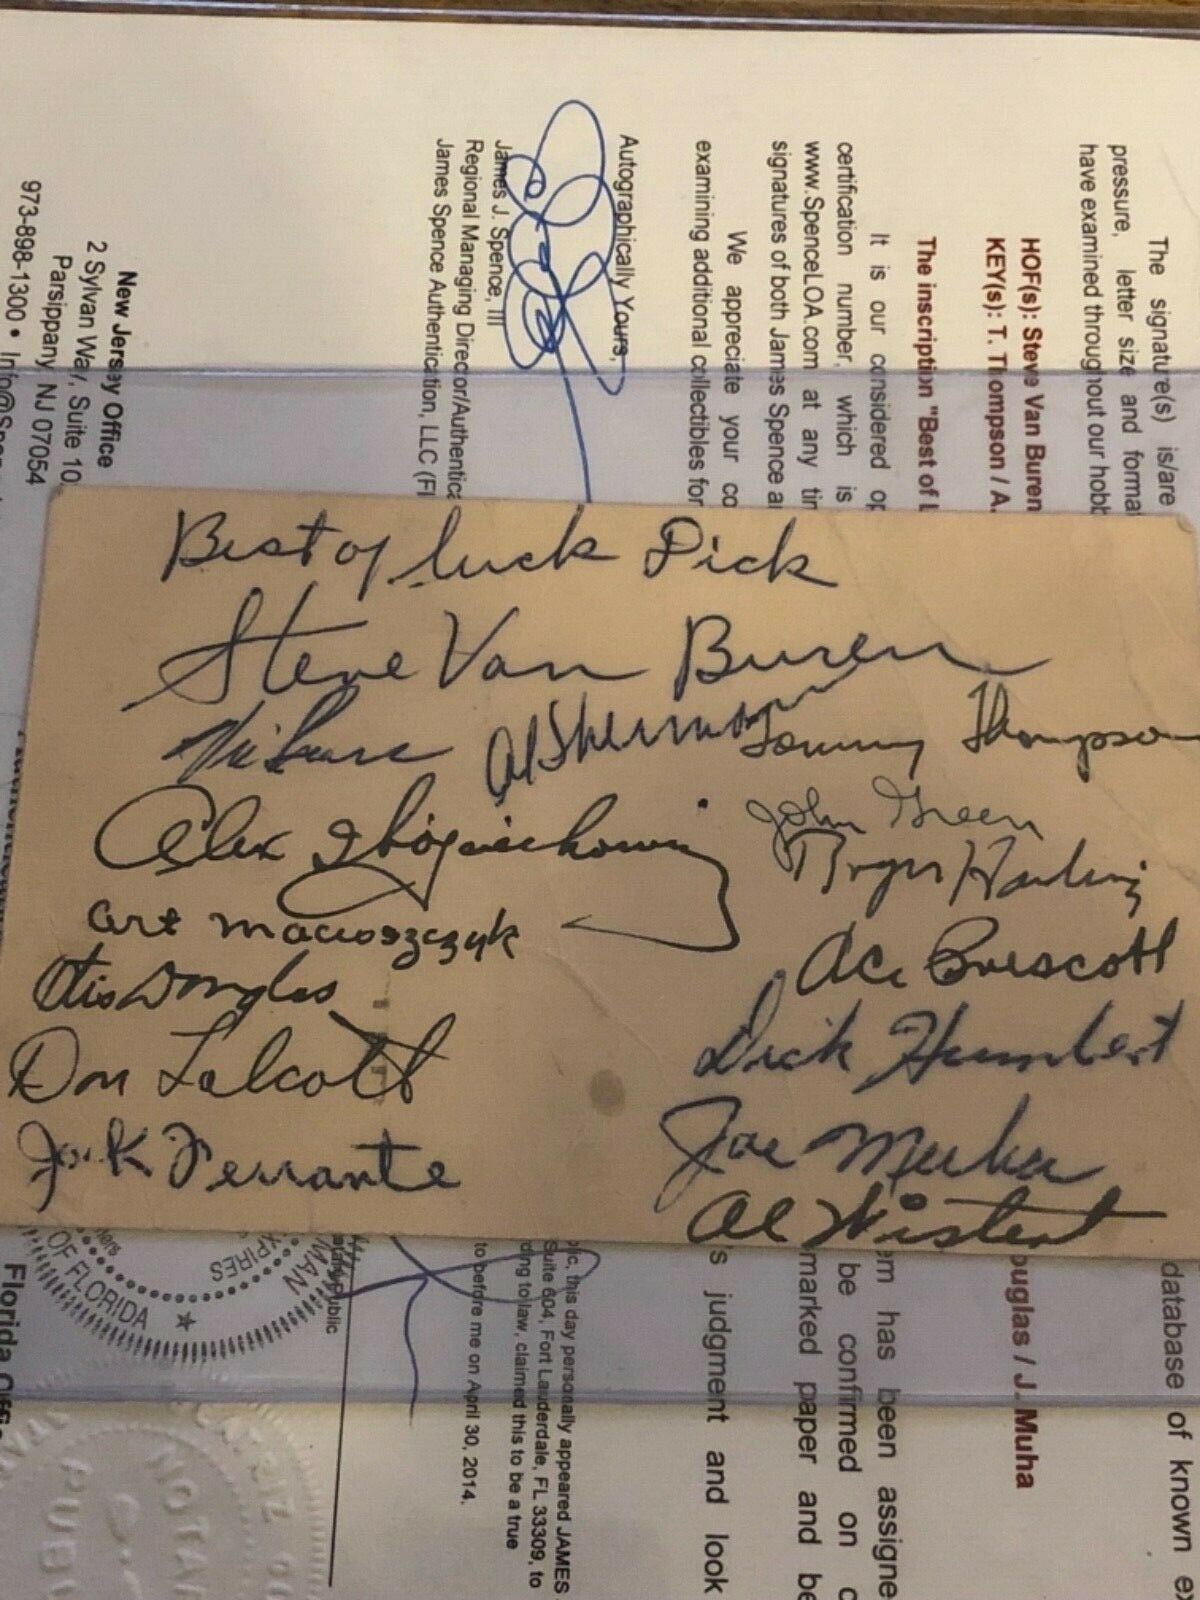 Best of luck Dick
Steve Van Buren
Vic
Al Sherman
Tommy Thompson
Alex Wojciechowicz
John Green
Roger Harding
Art Macioszczyk
Ace Prescott
Otis Douglas
Dick Humbert
Don Talcott
Joe Muha
Jack Ferrante
Al Wistert
The signature(s) is/are
pressure, letter size and format
have examined throughout our hobb
database of known ex
HOF(s): Steve Van Buren
KEY(s): T. Thompson / A.
ouglas / J. Muha
The inscription "Best of l
It is our considered op
em has been assigne
certification number, which is
be confirmed on
www.SpenceLOA.com at any tim
marked paper and be
signatures of both James Spence a
We appreciate your co
's judgment and look
examining additional collectibles for
Autographically Yours,
James J. Spence, III
Regional Managing Director/Authentica
James Spence Authentication, LLC (Fl
lic, this day personally appeared JAMES
Suite 604, Fort Lauderdale, FL 33309, to
ding to law, claimed this to be a true
to before me on April 30, 2014.
Public
New Jersey Office
2 Sylvan Way, Suite 10
Parsippany NJ 07054
973-898-1300 • Info@Spen
Florida Offi
OF FLORIDA
EXPIRES
NOTA
PUBL